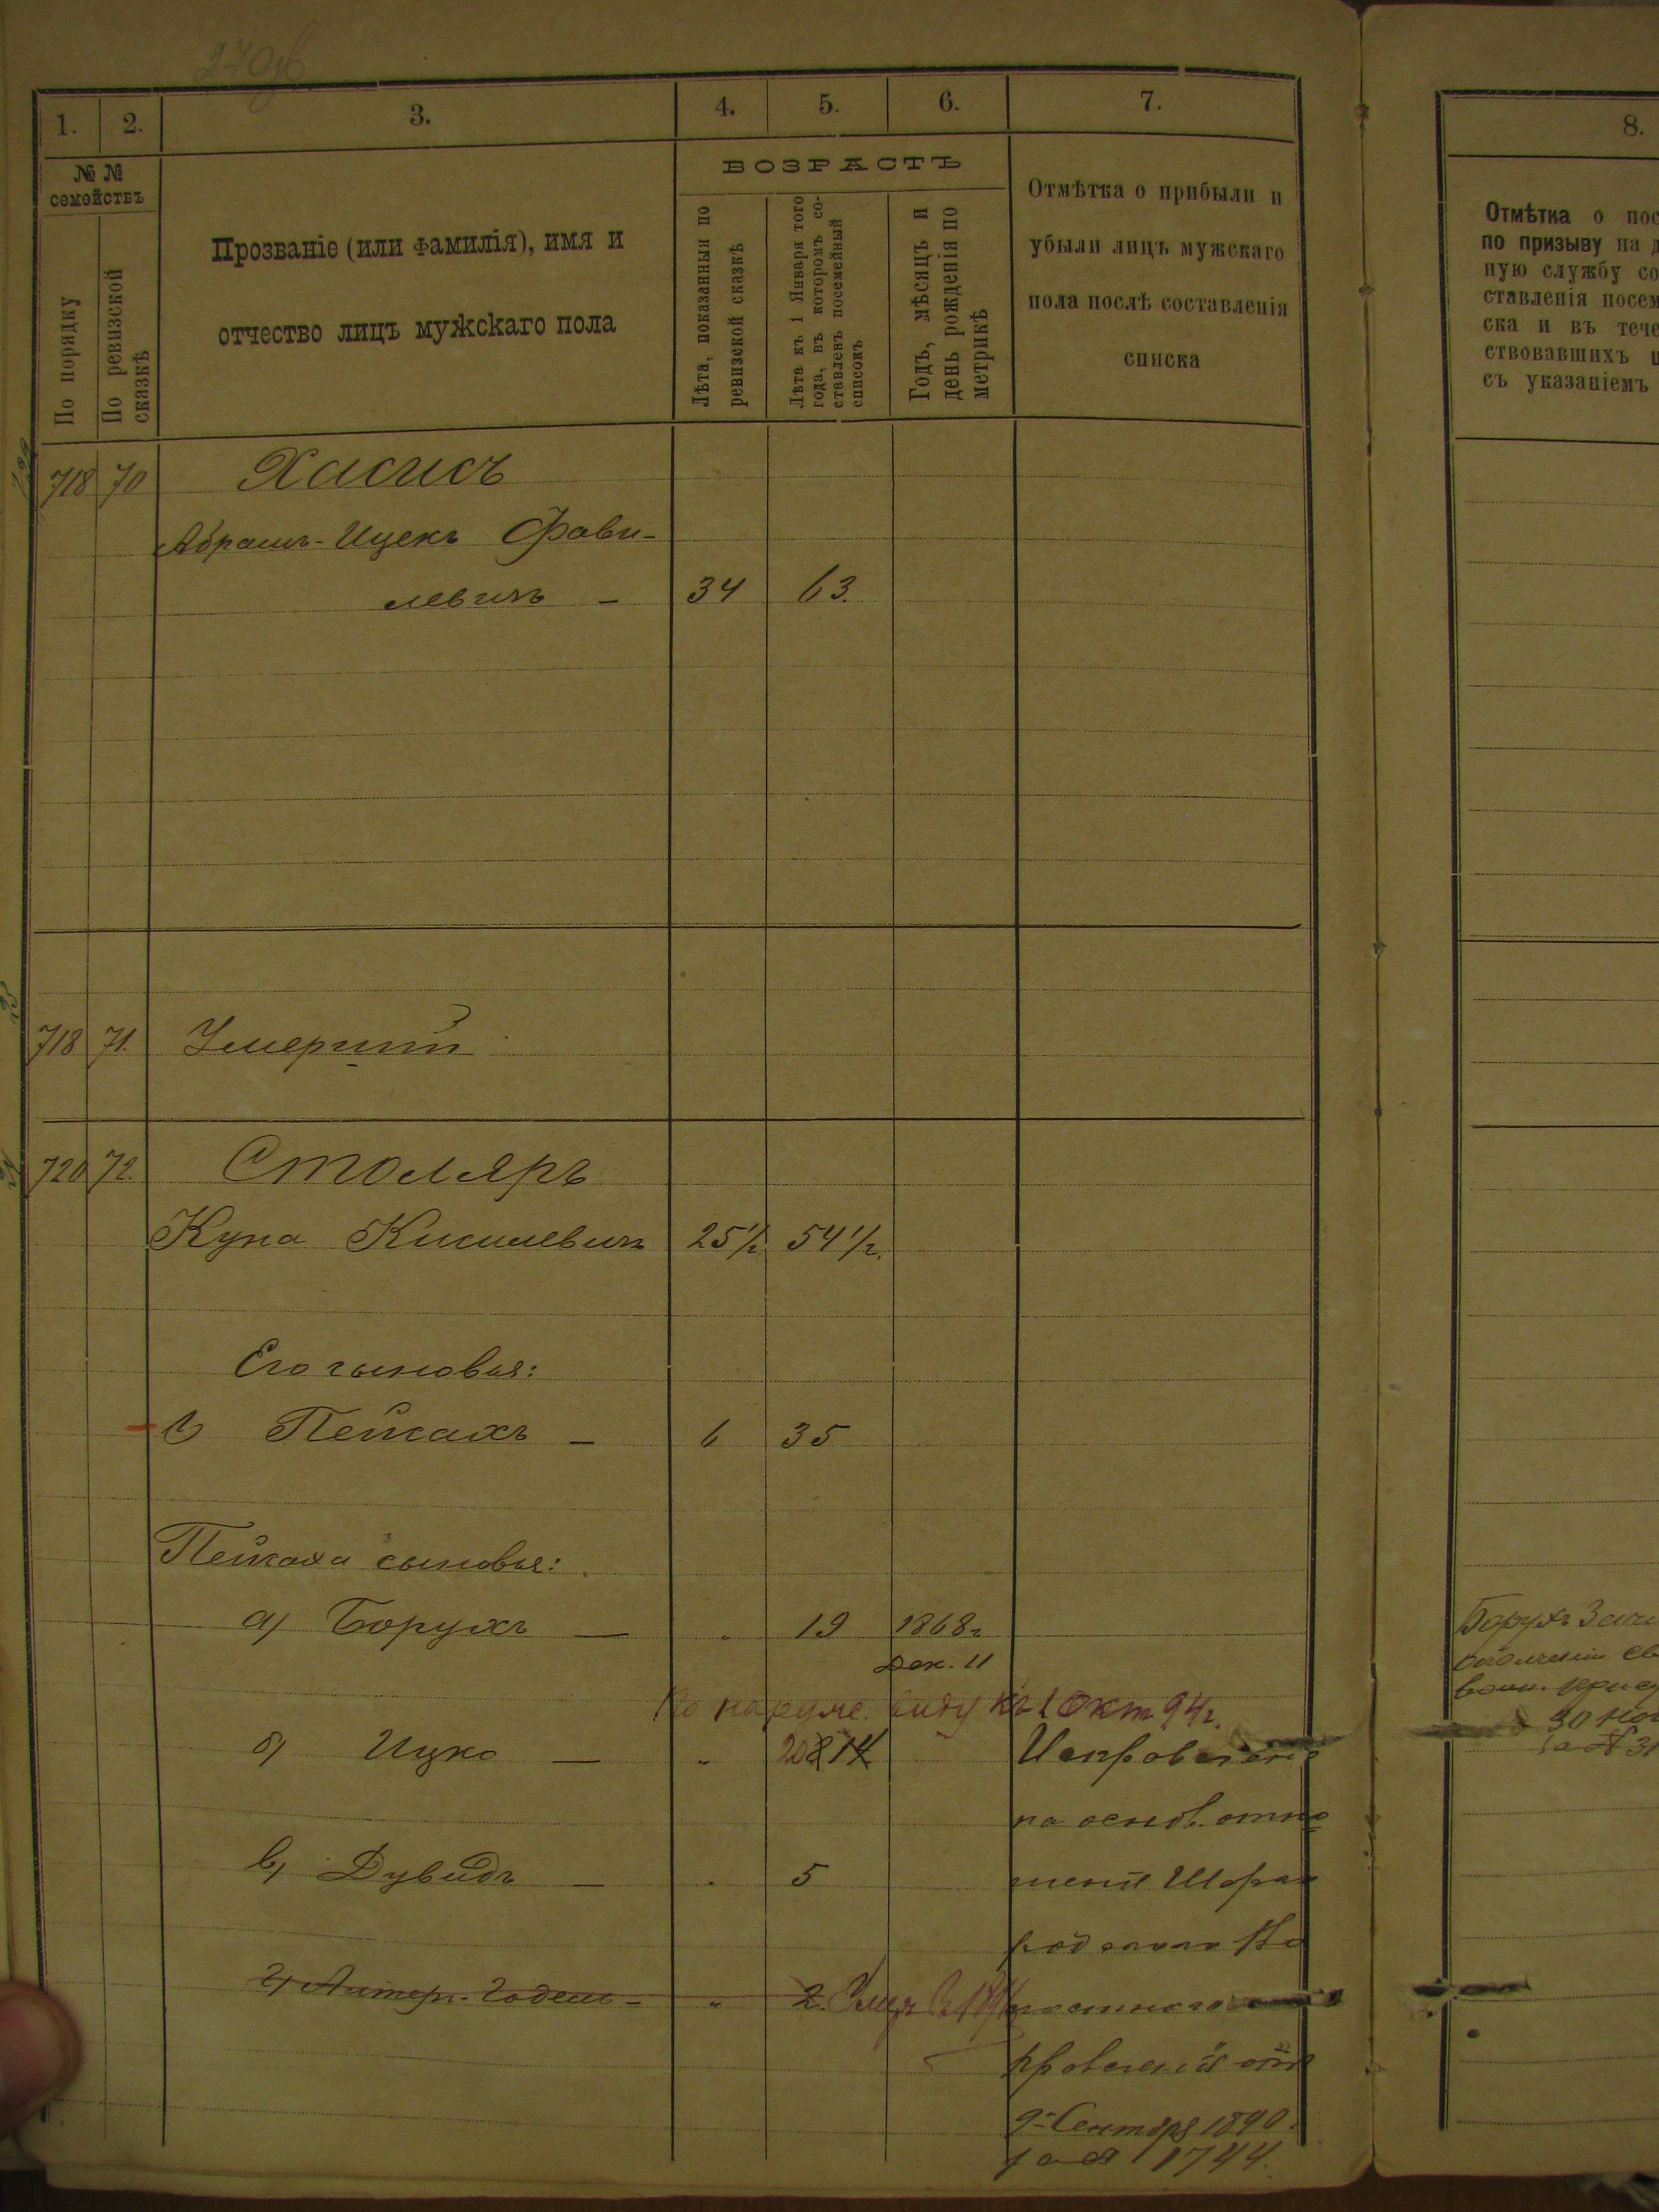 270об
1. 2. 3. 4. 5. 6. 7.
№ №
семействъ
По порядку
По ревизской
сказкѣ
Прозваніе (или фамилія), имя и
отчество лицъ мужскаго пола
ВОЗРАСТЪ
Лѣта, показанныя по
ревизской сказкѣ
Лѣта къ 1 Января того
года, въ которомъ со-
ставленъ посемейный
списокъ
Годъ, мѣсяцъ и
день рожденія по
метрикѣ
Отмѣтка о прибыли и
убыли лицъ мужскаго
пола послѣ составленія
списка
718 70 Хасисъ
Абрамъ-Ицекъ Фави-
левичъ – 34 63.
718 71. Умершій
720 72. Столяръ
Купа Кисилевичъ 25½ 54½.
Его сыновья:
1) Пейсахъ – 6 35
Пейсаха сыновья:
а) Борухъ — „ 19 1868г
Дек. 11
По наружн. виду къ 1 Окт 94г.
б) Ицко — „ 20 14 Исправлено
на основ. отно
шенія
в) Дувидъ — „ 5
родского По
г) Алтеръ-Годель – „ 2.
правленія отъ
9 Сентября 1890.
за № 1744.
8.
Отмѣтка о пос
по призыву на д
ную службу со
ставленія посем
ска и въ тече
ствовавшихъ
съ указаніемъ
Борухъ Зачи
ополченіи
воин. прису
30 Ноя
за № 31